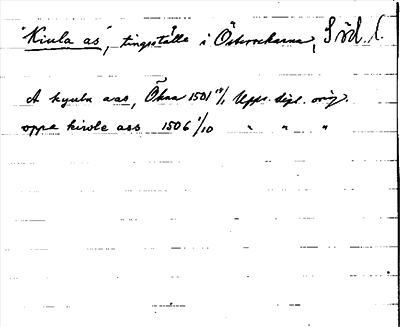 "Kiula as", tingställe i Österrekarne, Söd. l.
A kyulu aas, Ökna 1501 14/1 Upps. dipl. orig.
oppa kiwle ass 1506 1/10 " " "